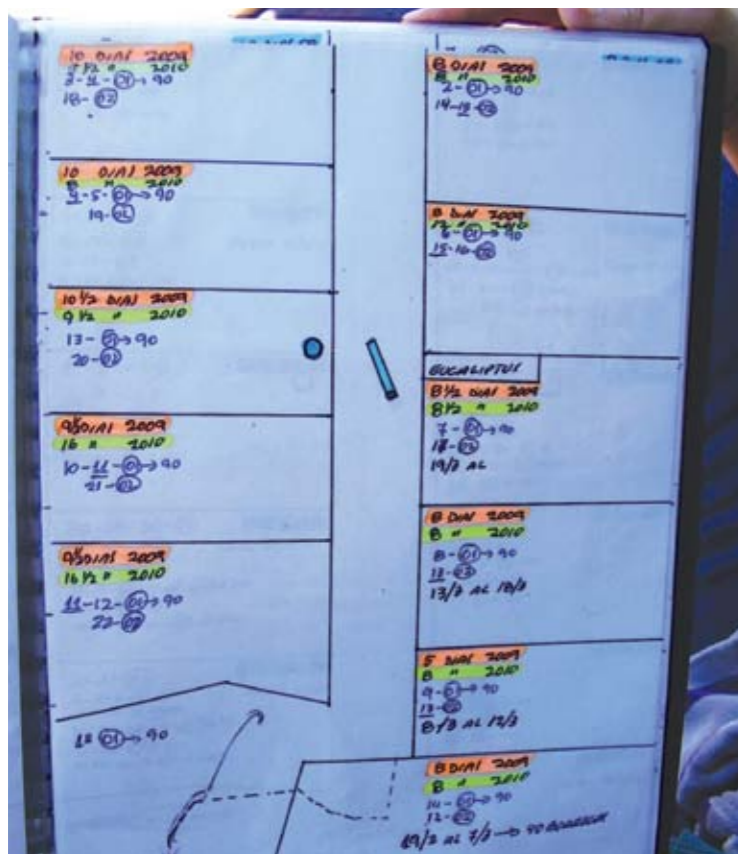 10 DIAS 2009
7 1/2 " 2010
3-11-01→90
18-02
10 DIAS 2009
8 " 2010
4-5-01→90
19-02
10 1/2 DIAS 2009
9 1/2 " 2010
13-01→90
20-02
9 1/2 DIAS 2009
16 " 2010
10-11-01→90
21-02
9 1/2 DIAS 2009
16 1/2 " 2010
11-12-01→90
22-02
18 01→90
8 DIAS 2009
8 " 2010
2-01→90
14-02
8 DIAS 2009
12 " 2010
6-01→90
15-16-02
EUCALIPTUS
8 1/2 DIAS 2009
8 1/2 " 2010
7-01→90
17-02
19/3 AL
8 DIAS 2009
8 " 2010
8-01→90
13/3 AL 18/3
5 DIAS 2009
8 " 2010
9-01→90
8/3 AL 12/3
8 DIAS 2009
8 " 2010
01→90
12-02
19/2 AL 7/3 → 90